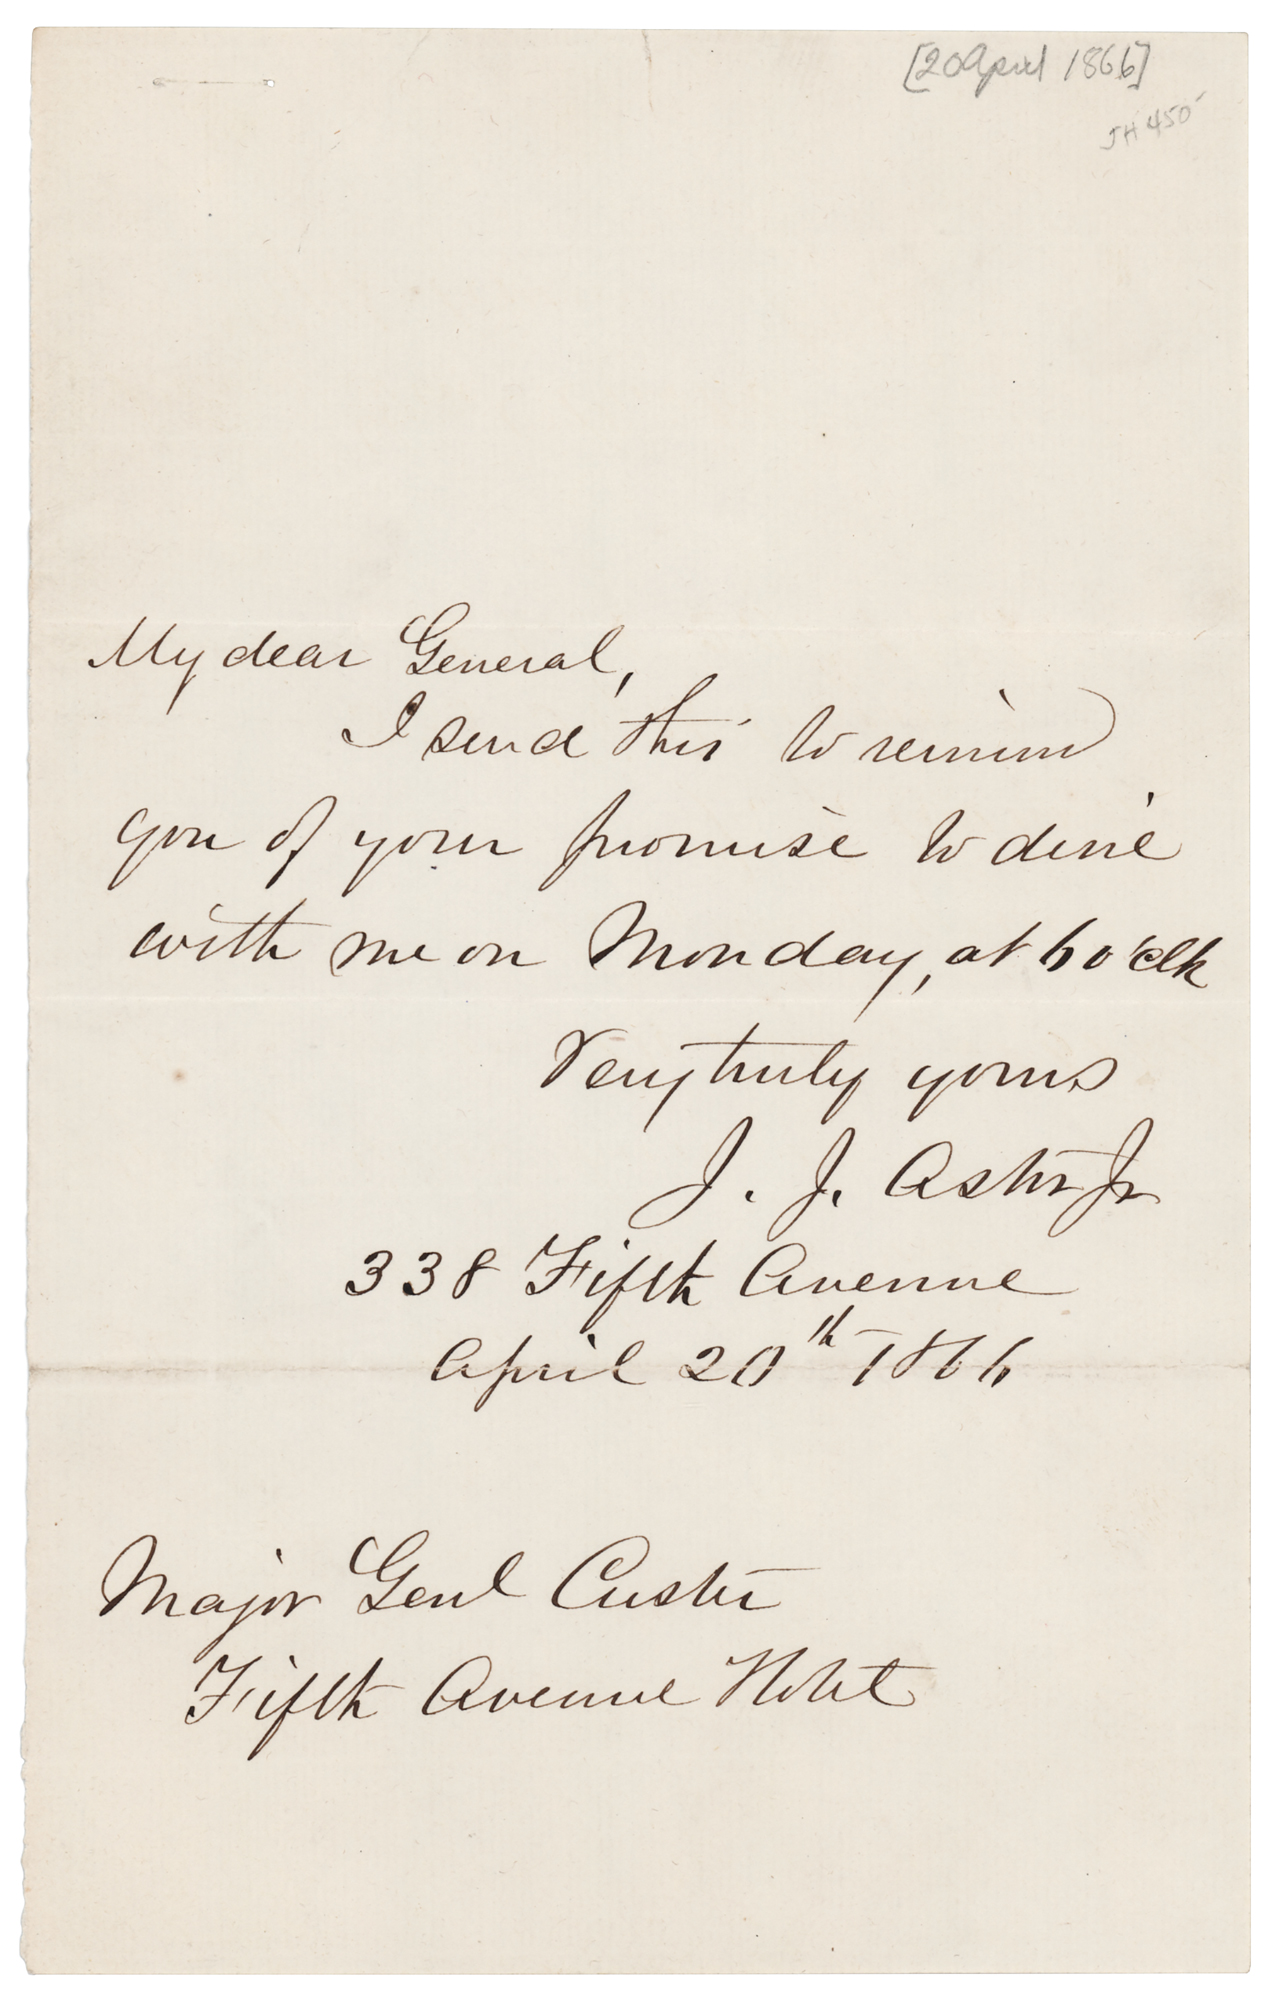 [20 April 1866]
JH 450
My dear General,
I send this to remind
you of your promise to dine
with me on Monday, at 6 o'clk
Very truly yours
J. J. Astor Jr
338 Fifth Avenue
April 20th 1866
Major Genl Custer
Fifth Avenue Hotel